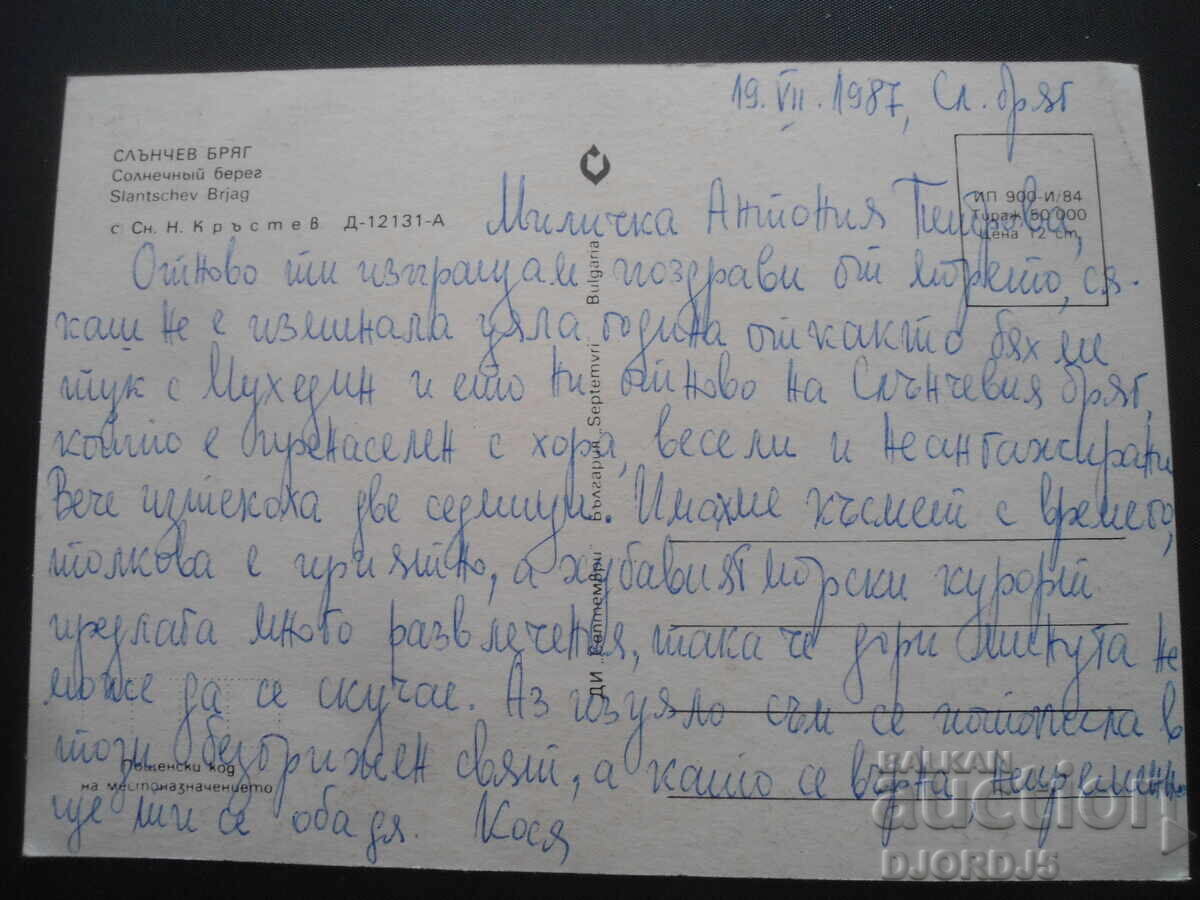 19. VII. 1987, Сл. бряг
СЛЪНЧЕВ БРЯГ
Солнечный берег
Slantschev Brjag
с Сн. Н. Кръстев Д-12131-А
ИП 900-И/84
Тираж 50 000
Цена 12 cm.
Миличка Антония Петрова,
Отново ти изпращам поздрави от морето, ся-
каш не е изминала цяла година откакто бяхме
тук с Мухедин и ето ни отново на Слънчевия бряг,
който е пренаселен с хора, весели и неангажирани
Вече изтекоха две седмици. Имахме късмет с времето,
толкова е приятно, а хубавият морски курорт
предлага много развлечения, така че дори минута не
може да се скучае. Аз изцяло съм се потопила в
този безгрижен свят, а като се върна, непременно
ще ти се обадя. Кося
ДИ „Септември“ България „Septemvri“ Bulgaria
Пощенски код
на местоназначението
BALKAN
auction
DJORDJ5